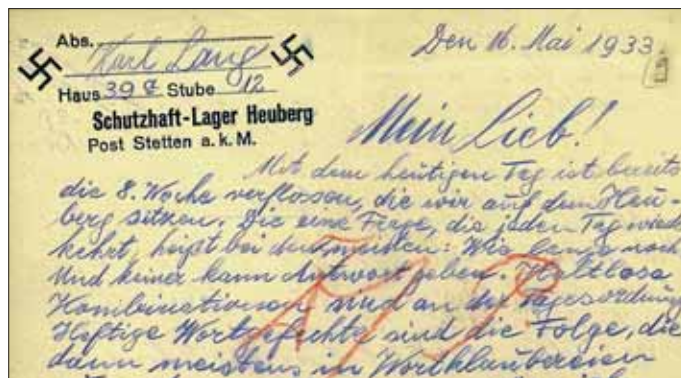 Abs. Karl Lang
Haus 39 Stube 12
Schutzhaft-Lager Heuberg
Post Stetten a. k. M.
Den 16. Mai 1933
Mein Lieb!
Mit dem heutigen Tag ist bereits
die 8. Woche verflossen, die wir auf dem Heu-
berg sitzen. Die eine Frage, die jeden Tag
kehrt, heißt bei den meisten: Wie lange noch
Und keiner kann Antwort geben. Haltlose
Kombinationen sind an der Tagesordnung
Heftige Wortgefechte sind die Folge, die
dann meistens in Wortklaubereien